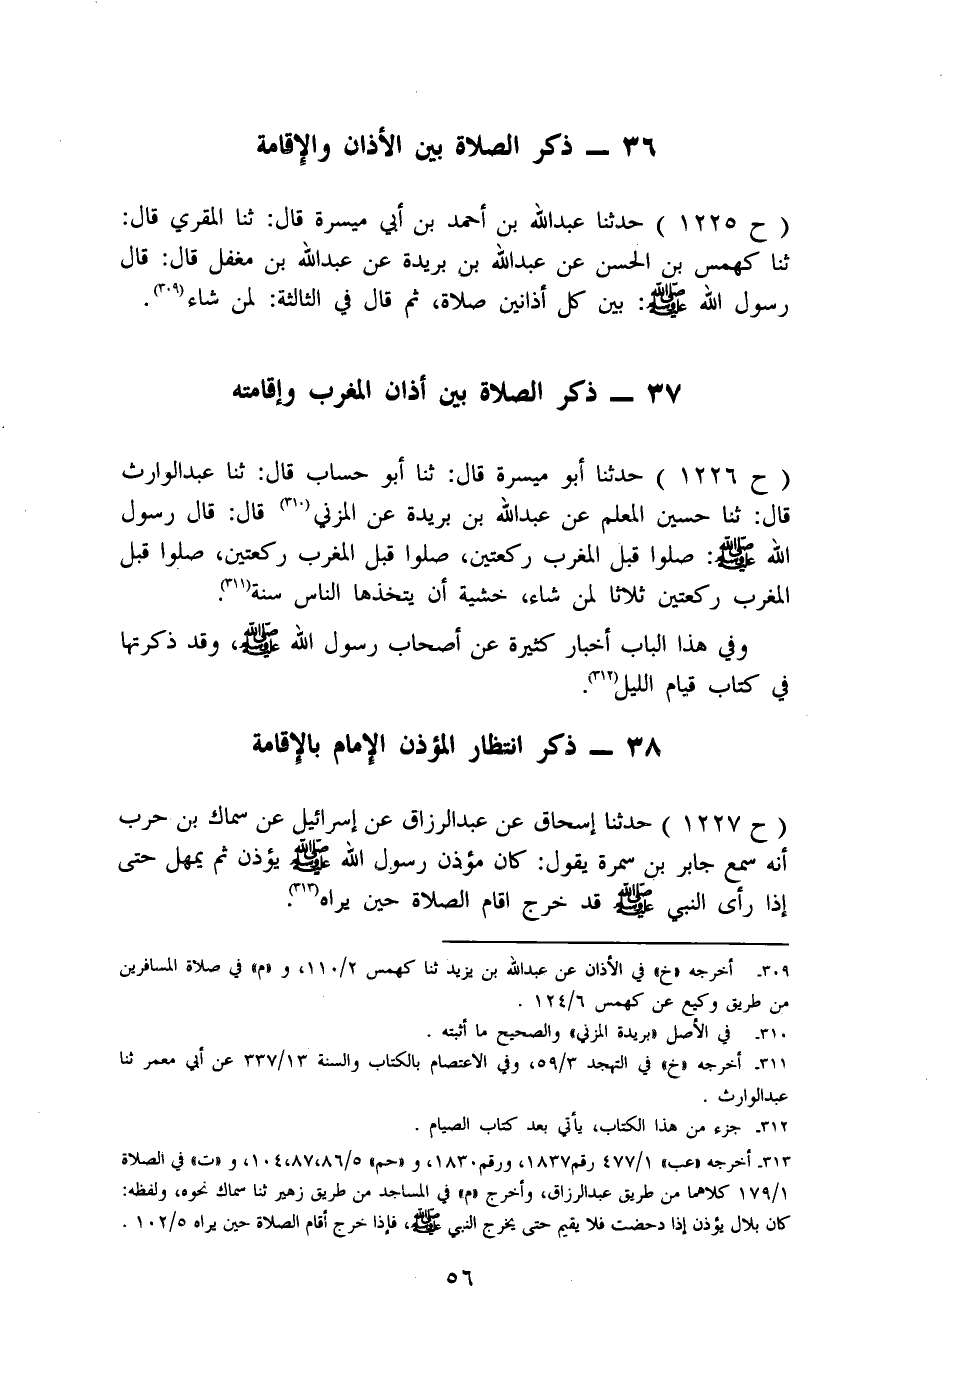 ٣٦ ــ ذكر الصلاة بين الأذان والإقامة
( ح ١٢٢٥ ) حدثنا عبدالله بن أحمد بن أبي ميسرة قال: ثنا المقري قال:
ثنا كهمس بن الحسن عن عبدالله بن بريدة عن عبدالله بن مغفل قال: قال
رسول الله ﷺ: بين كل أذانين صلاة، ثم قال في الثالثة: لمن شاء(٣٠٩).
٣٧ ــ ذكر الصلاة بين أذان المغرب وإقامته
( ح ١٢٢٦ ) حدثنا أبو ميسرة قال: ثنا أبو حساب قال: ثنا عبدالوارث
قال: ثنا حسين المعلم عن عبدالله بن بريدة عن المزني(٣١٠) قال: قال رسول
الله ﷺ: صلوا قبل المغرب ركعتين، صلوا قبل المغرب ركعتين، صلوا قبل
المغرب ركعتين ثلاثا لمن شاء، خشية أن يتخذها الناس سنة(٣١١).
وفي هذا الباب أخبار كثيرة عن أصحاب رسول الله ﷺ، وقد ذكرتها
في كتاب قيام الليل(٣١٢).
٣٨ ــ ذكر انتظار المؤذن الإمام بالإقامة
( ح ١٢٢٧ ) حدثنا إسحاق عن عبدالرزاق عن إسرائيل عن سماك بن حرب
أنه سمع جابر بن سمرة يقول: كان مؤذن رسول الله ﷺ يؤذن ثم يمهل حتى
إذا رأى النبي ﷺ قد خرج اقام الصلاة حين يراه(٣١٣).
٣٠٩ـ أخرجه «خ» في الأذان عن عبدالله بن يزيد ثنا كهمس ١١٠/٢، و «م» في صلاة المسافرين
من طريق وكيع عن كهمس ١٢٤/٦ .
٣١٠ـ في الأصل «بريدة المزني» والصحيح ما أثبته .
٣١١ـ أخرجه «خ» في التهجد ٥٩/٣، وفي الاعتصام بالكتاب والسنة ٣٣٧/١٣ عن أبي معمر ثنا
عبدالوارث .
٣١٢ـ جزء من هذا الكتاب، يأتي بعد كتاب الصيام .
٣١٣ـ أخرجه «عب» ٤٧٧/١ رقم١٨٣٧، ورقم١٨٣٠، و «حم» ١٠٤،٨٧،٨٦/٥، و «ت» في الصلاة
١٧٩/١ كلاهما من طريق عبدالرزاق، وأخرج «م» في المساجد من طريق زهير ثنا سماك نحوه، ولفظه:
كان بلال يؤذن إذا دحضت فلا يقيم حتى يخرج النبي ﷺ، فإذا خرج أقام الصلاة حين يراه ١٠٢/٥ .
٥٦